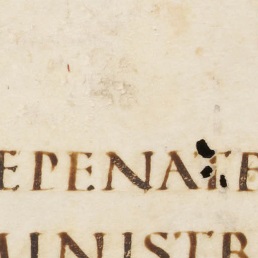 EPENATE
MINISTR